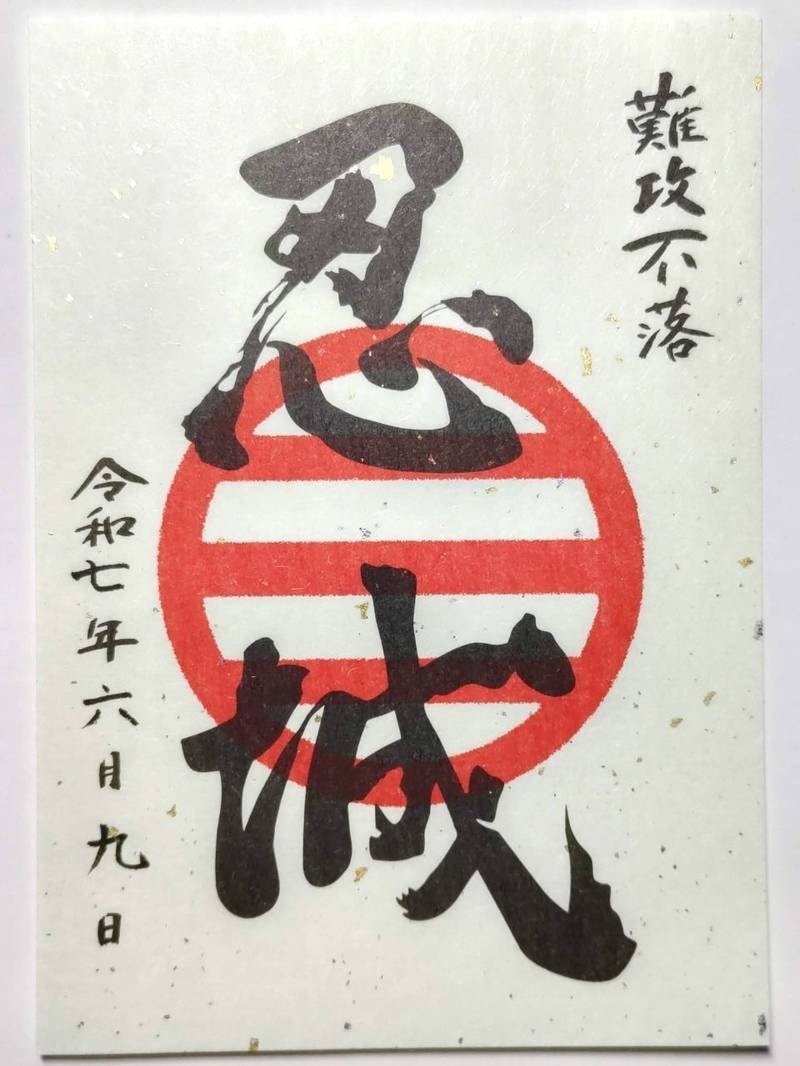 難攻不落
忍城
令和七年六月九日